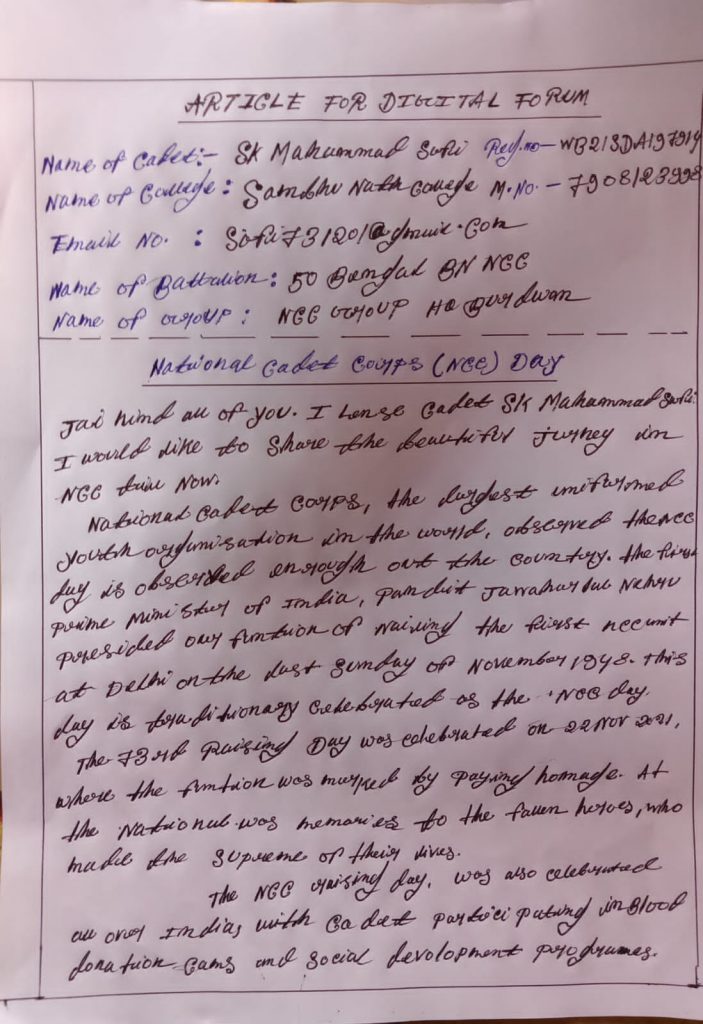 ARTICLE FOR DIGITAL FORUM
Name of Cadet:- SK Mahammad Safi Reg.no- WB21SDA197914
Name of College: Sambhu Nath College M.No. - 7908123998
Email No. : Safi731201@gmail.com
Name of Battalion: 50 Bengal BN NCC
Name of Group: NCC Group HQ Burdwan
National Cadet Corps (NCC) Day
Jai hind all of you. I Cadet SK Mahammad Safi.
I would like to share the beautiful jurney in
NCC Now.
National Cadet Corps, the largest uniformed
youth organisation in the world, observed the NCC
day is observed out the country. the first
prime Minister of India, Pandit Jawaharlal Nehru
presided funtion of Raising the first ncc unit
at Delhi on the last Sunday of November 1948. This
day is traditionary celebrated as the 'NCC day.
The 73rd Raising Day was celebrated on 22 Nov 2021,
where the funtion was marked by paying homage. At
the National was memories to the fallen heroes, who
made the Supreme of their lives.
The NCC raising day, was also celebrated
all over Indias with Cadet participating in Blood
donation Cams and Social devolopment programes.